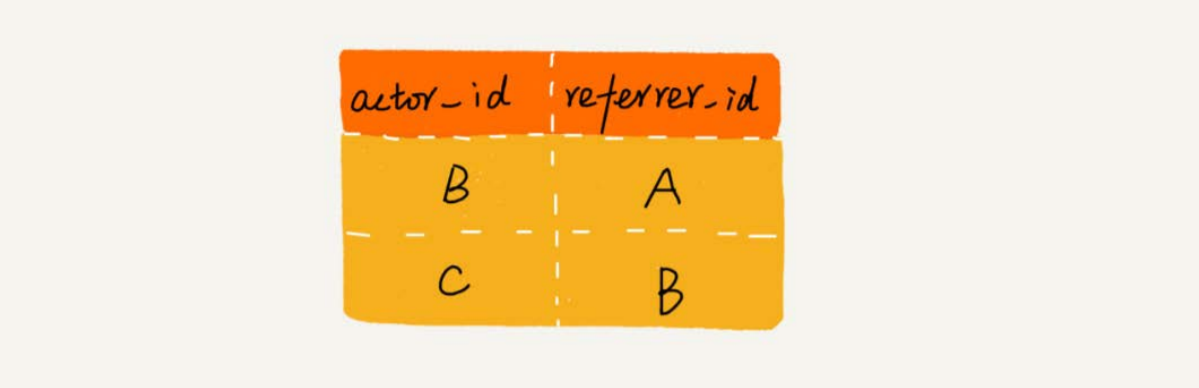 actor_id referrer_id
B A
C B